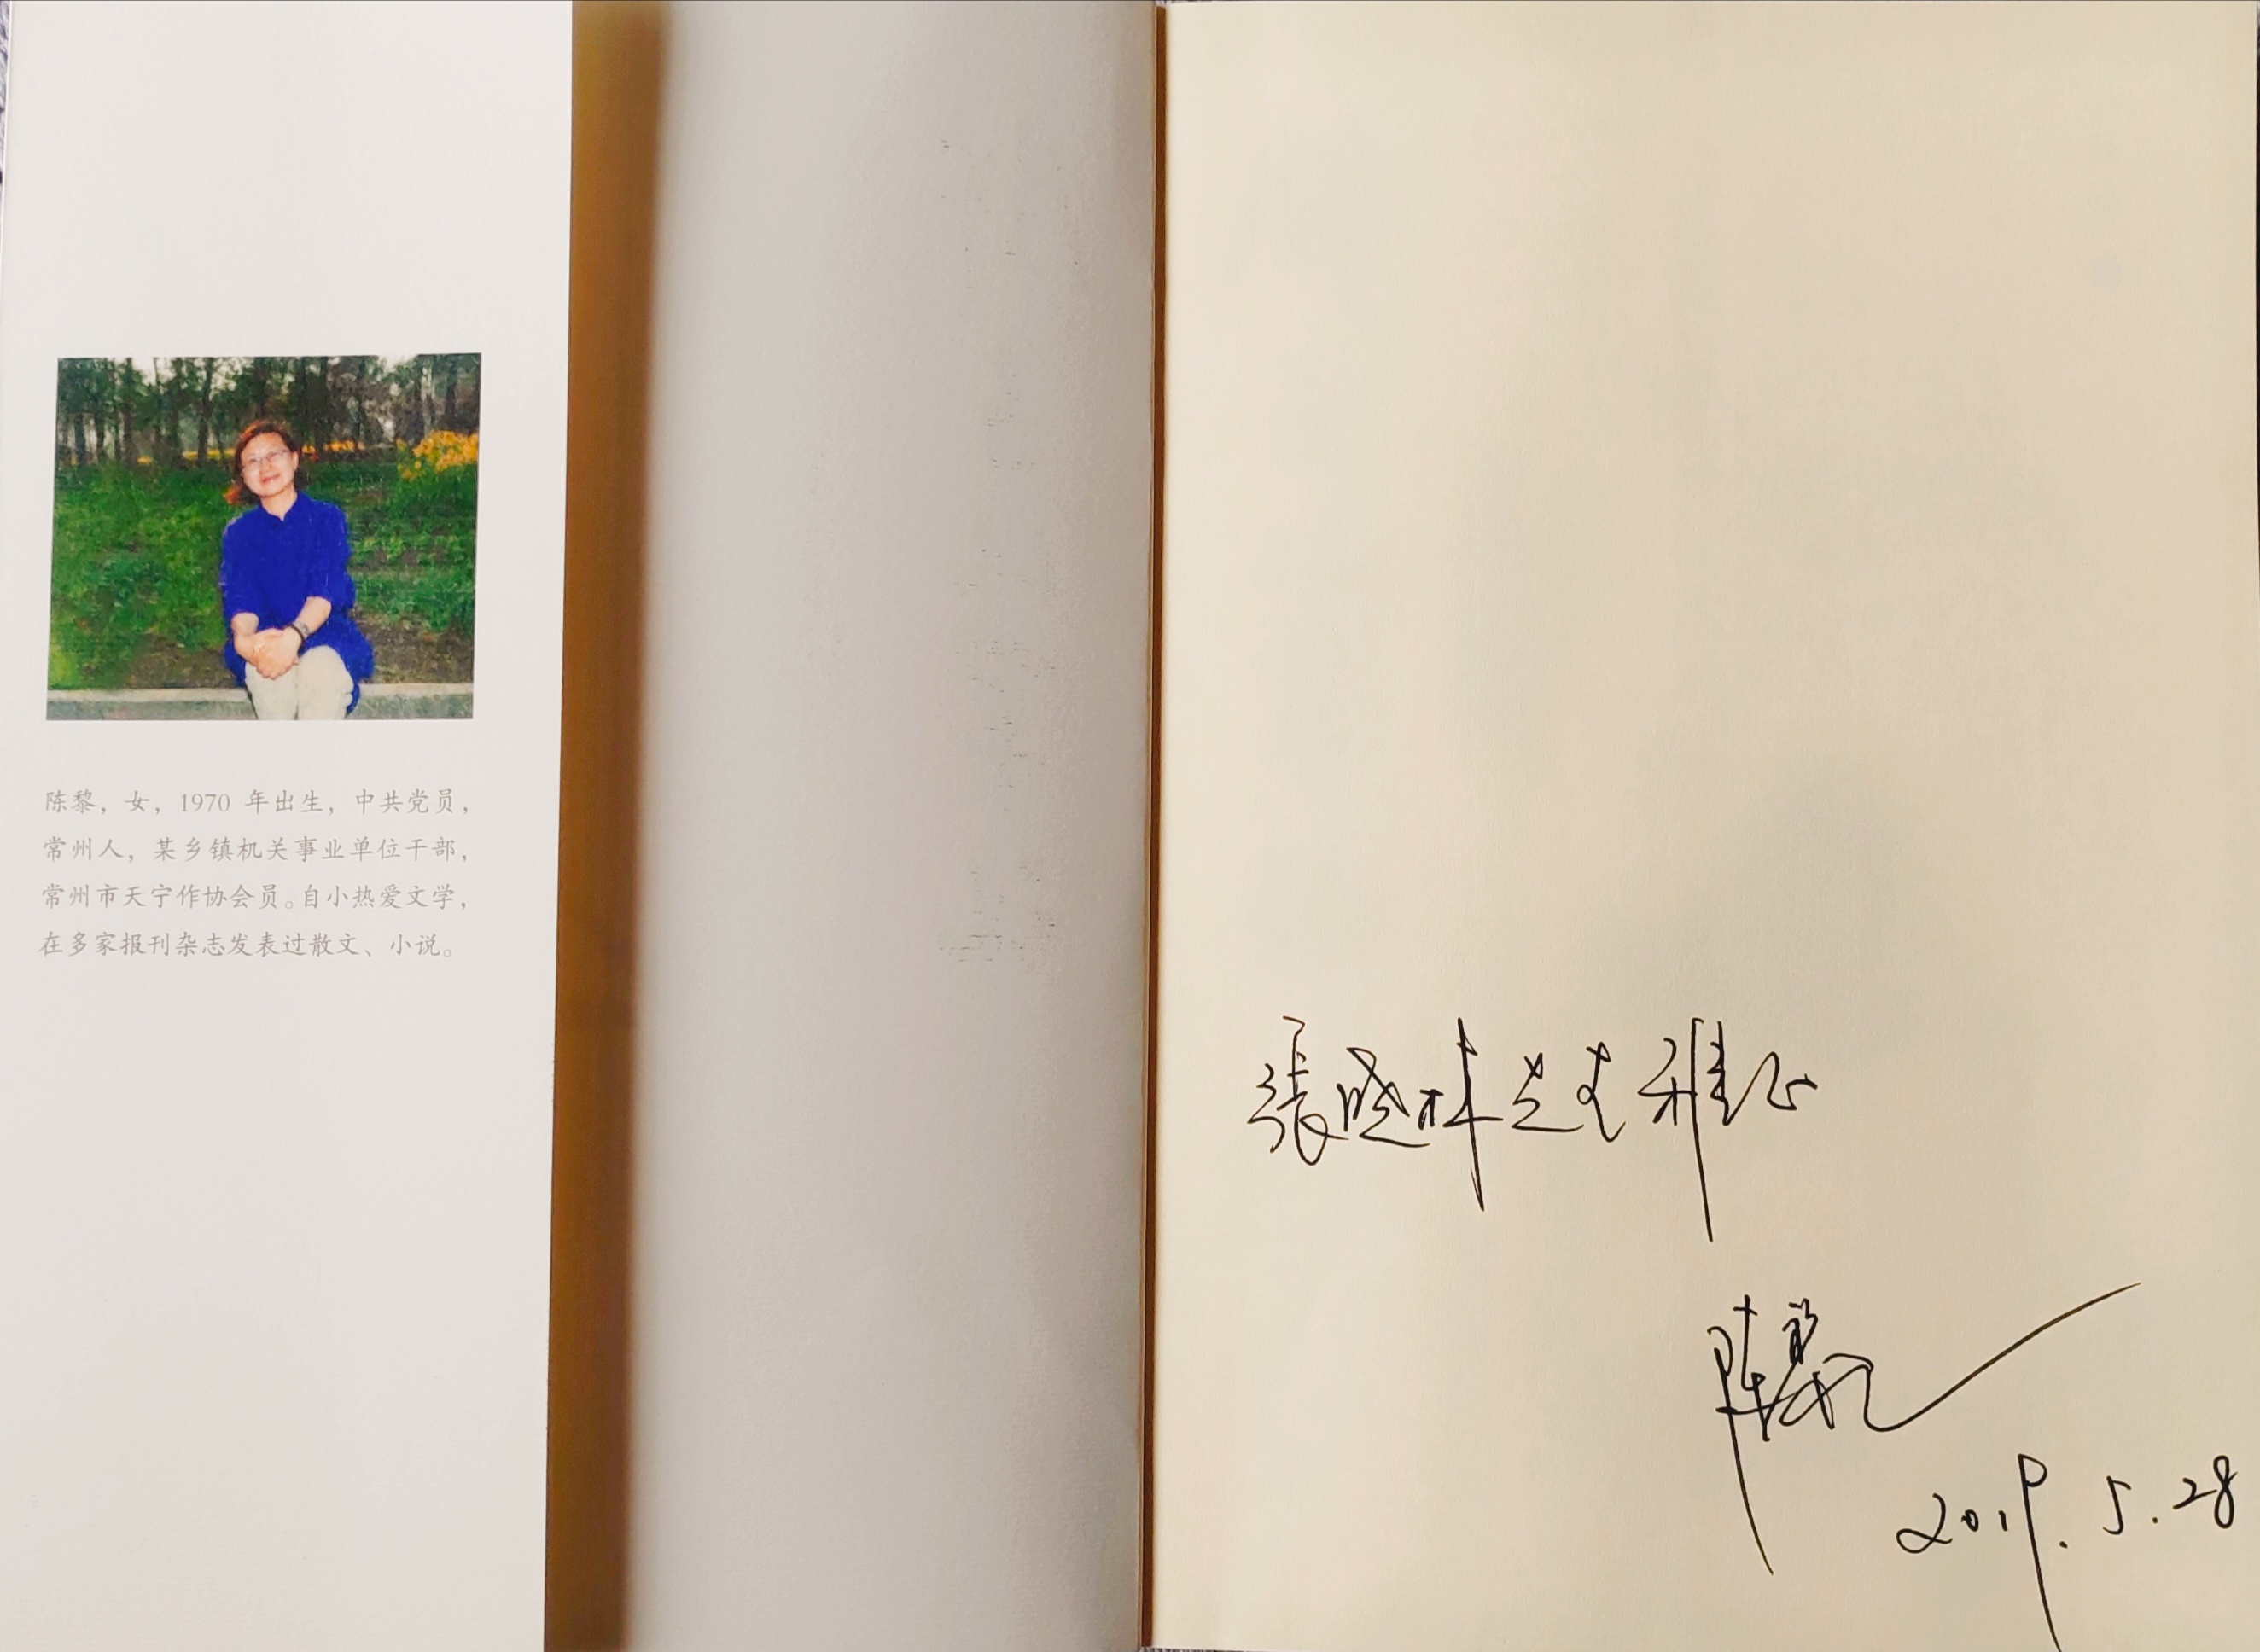 陈黎，女，1970 年出生，中共党员，
常州人，某乡镇机关事业单位干部，
常州市天宁作协会员。自小热爱文学，
在多家报刊杂志发表过散文、小说。
張晓林先生雅正
陈黎
2019.5.28